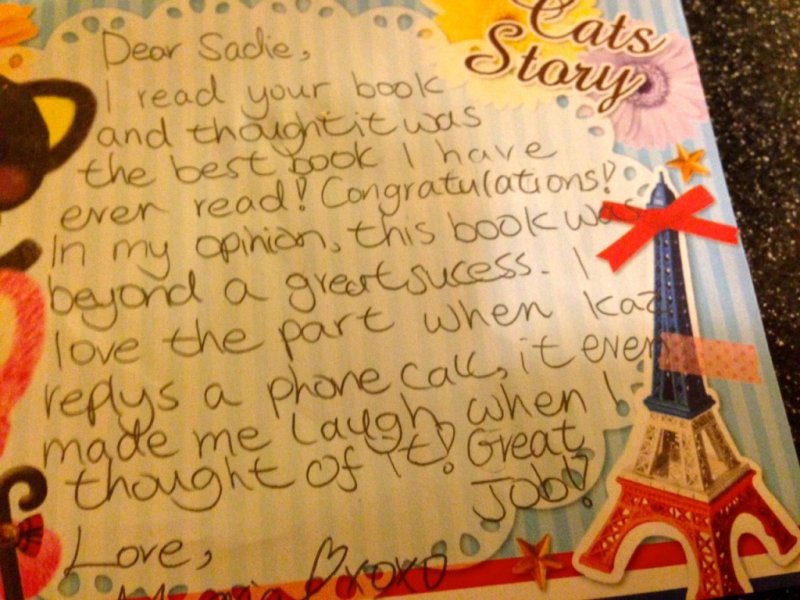 Cats
Story
Dear Sadie,
I read your book
and thought it was
the best book I have
ever read! Congratulations!
In my opinion, this book was
beyond a great sucess. I
love the part when Kaz
replys a phone call, it even
made me laugh when I
thought of it! Great
Job!!
Love,
xoxo